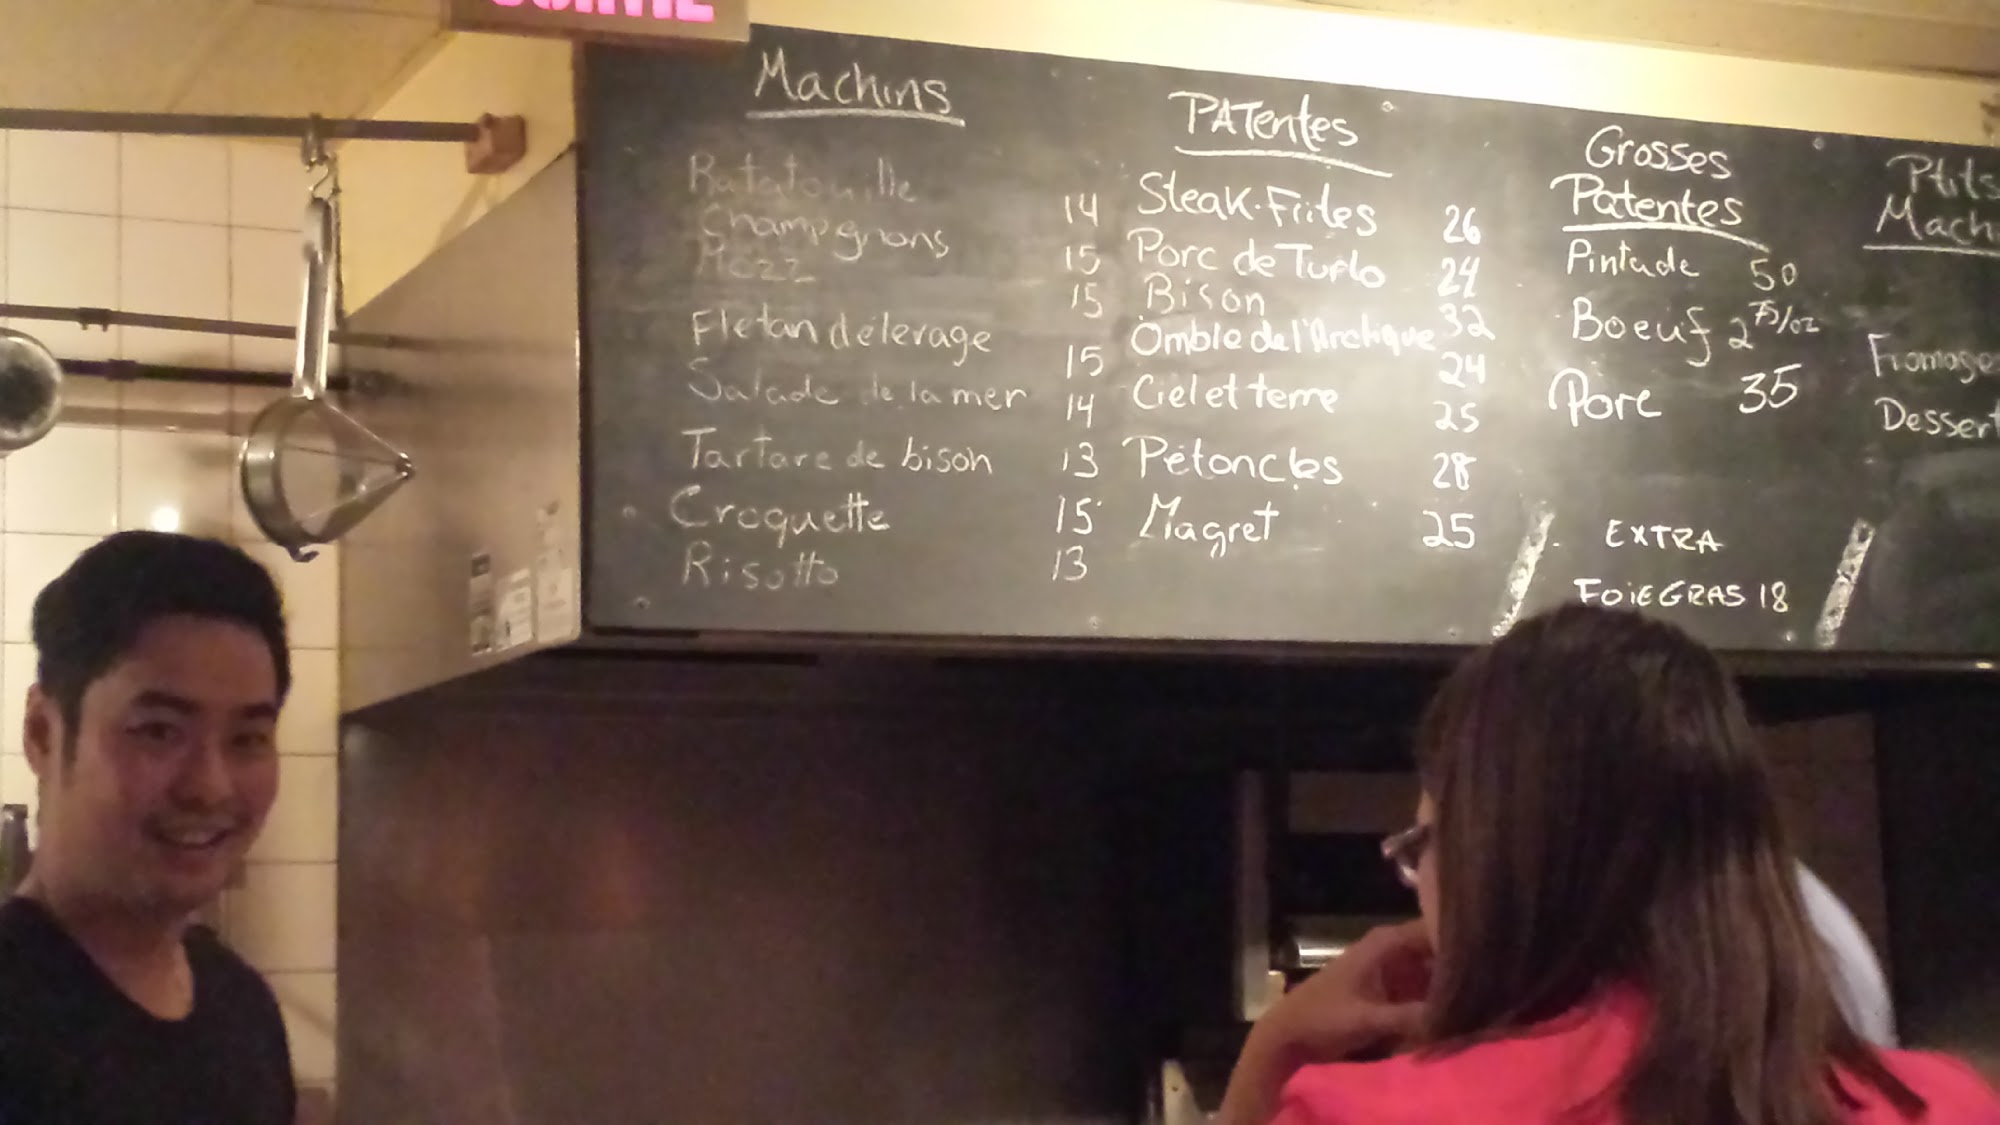 Machins
Ratatouille 14
Champignons 15
Mezz 15
Fletan d'elevage 15
Salade de la mer 14
Tartare de bison 13
Croquette 15
Risotto 13
PATentes
Steak-Frites 26
Porc de Turlo 24
Bison 32
Omble de l'Arctique 24
Ciel et terre 25
Pétoncles 28
Magret 25
Grosses
Patentes
Pintade 50
Boeuf 2 75/oz
Porc 35
EXTRA
FOIE GRAS 18
Ptits
Mach
Fromages
Dessert